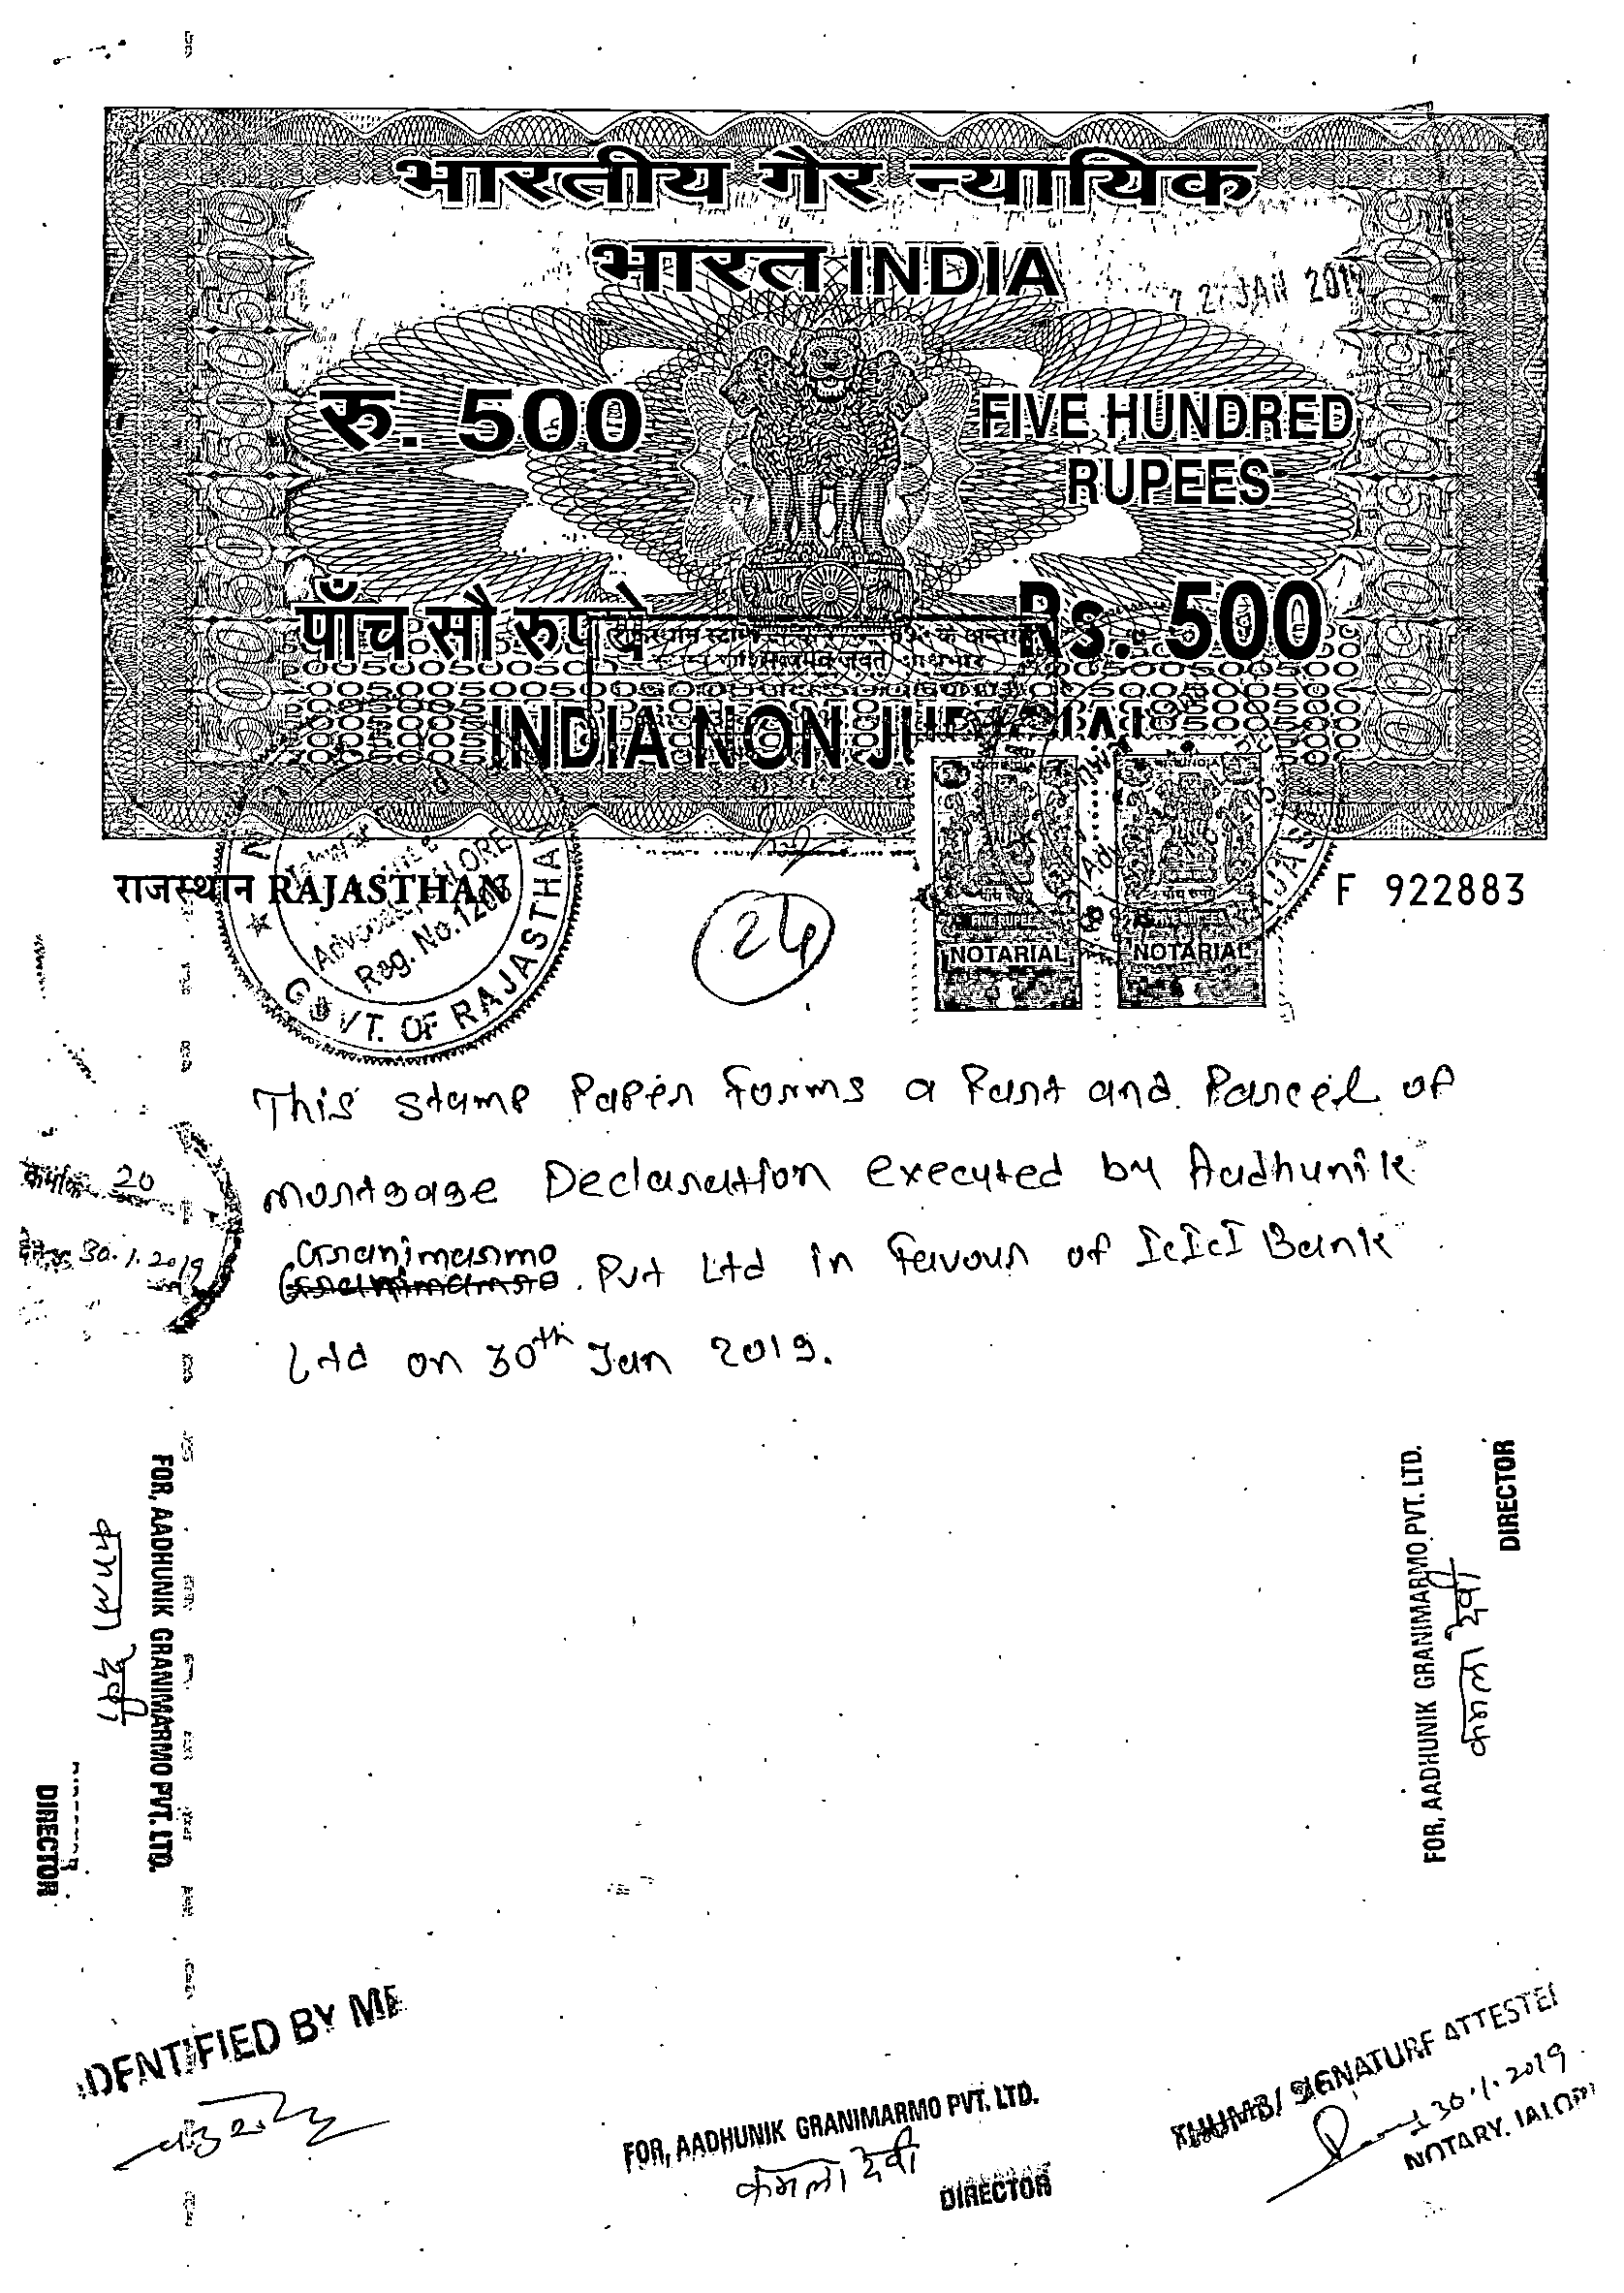 भारतीय गैर न्यायिक
भारत INDIA
2 JAN 2019
रु. 500
FIVE HUNDRED
RUPEES
पाँच सौ रुपये
Rs. 500
INDIA NON JUDICIAL
राजस्थान RAJASTHAN
F 922883
Advocate
JALORE
Reg. No.
GOVT. OF RAJASTHAN
24
NOTARIAL
NOTARIAL
This Stamp Paper Forms a Part and Parcel of
Mortgage Declaration executed by Aadhunik
Granimarmo
Pvt Ltd in Favour of ICICI Bank
Ltd on 30th Jan 2019.
क्रमांक 20
30.1.2019
FOR, AADHUNIK GRANIMARMO PVT. LTD.
कमला देवी
DIRECTOR
FOR, AADHUNIK GRANIMARMO PVT. LTD.
कमला देवी
DIRECTOR
IDENTIFIED BY ME
FOR, AADHUNIK GRANIMARMO PVT. LTD.
कमला देवी
DIRECTOR
THUMB/ SIGNATURE ATTESTED
30.1.2019
NOTARY, JALORE